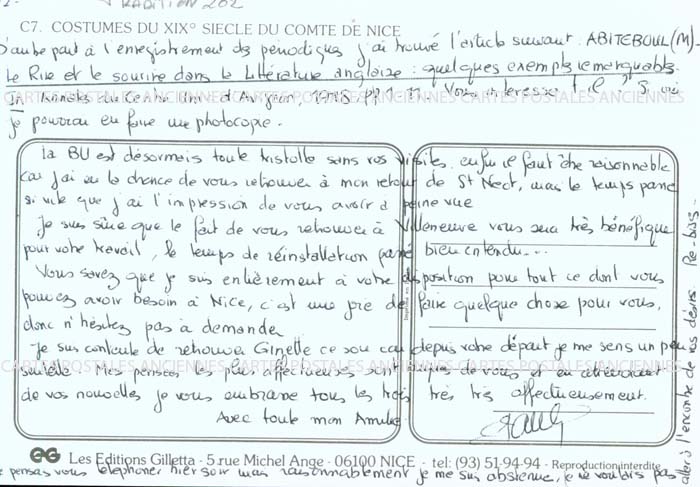 TRADITION 202
C7. COSTUMES DU XIX° SIECLE DU COMTE DE NICE
D'autre part à l'enregistrement des periodiques j'ai trouvé l'article suivant : ABITEBOUL (M) -
Le Rire et le sourire dans la littérature anglaise : quelques exemples remarquables.
In Annales du Centre Uni d'Avignon, pp 1-11. Vous interesse t'il ? Si oui
je pourrai en faire une photocopie.
CARTES POSTALES ANCIENNES CARTES POSTALES ANCIENNES CARTES POSTALES ANCIENNES
La BU est désormais toute tristotte sans vos visites. enfin il faut être raisonnable
car j'ai eu la chance de vous retrouver à mon retour de St Nect, mais le temps passe
si vite que j'ai l'impression de vous avoir à peine vue
Je suis sûre que le fait de vous retrouver à Villeneuve vous sera très bénéfique
pour votre travail, le temps de réinstallation passé bien entendu...
Vous savez que je suis entièrement à votre disposition pour tout ce dont vous
pouvez avoir besoin à Nice, c'est une joie de faire quelque chose pour vous,
donc n'hésitez pas à demander
Je suis contente de retrouver Ginette ce soir car depuis votre départ je me sens un peu
CARTES POSTALES ANCIENNES CARTES POSTALES ANCIENNES CARTES POSTALES ANCIENNES
Mes pensées les plus affectueuses sont auprès de vous et en attendant
de vos nouvelles je vous embrasse tous les trois très très affectueusement.
Avec toute mon Amitié
EG Les Editions Gilletta - 5 rue Michel Ange - 06100 NICE - tel: (93) 51-94-94 - Reproduction interdite
pensais vous telephoner hier soir mais raisonnablement je me suis abstenue, je ne voulais pas
aller à l'encontre de vos désirs. Re-bises -